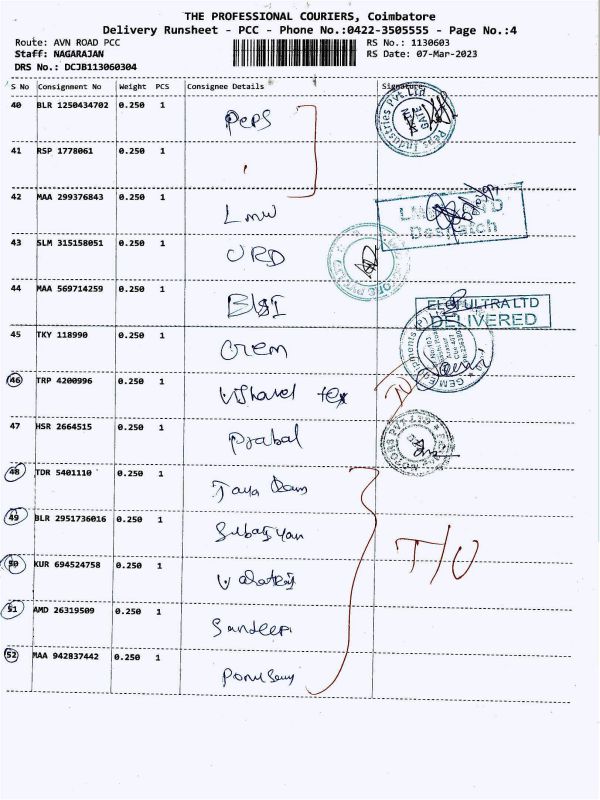 THE PROFESSIONAL COURIERS, Coimbatore
Delivery Runsheet - PCC - Phone No.:0422-3505555 - Page No.:4
Route: AVN ROAD PCC RS No.: 1130603
Staff: NAGARAJAN RS Date: 07-Mar-2023
DRS No.: DCJB113060304
S No Consignment No Weight PCS Consignee Details Signature
40 BLR 1250434702 0.250 1 Peps
Peps Industries Pvt Ltd
41 RSP 1778061 0.250 1
42 MAA 299376843 0.250 1 Lmw
Despatch
43 SLM 315158051 0.250 1 URD
44 MAA 569714259 0.250 1
ELGI ULTRA LTD
DELIVERED
45 TKY 118990 0.250 1 Gem
GEM Equipments
46 TRP 4200996 0.250 1 Vishavel tex
47 HSR 2664515 0.250 1 Prabal
48 TDR 5401110 0.250 1 Jaya Ram
49 BLR 2951736016 0.250 1
T/U
50 KUR 694524758 0.250 1
51 AMD 26319509 0.250 1 Sandeep
52 MAA 942837442 0.250 1